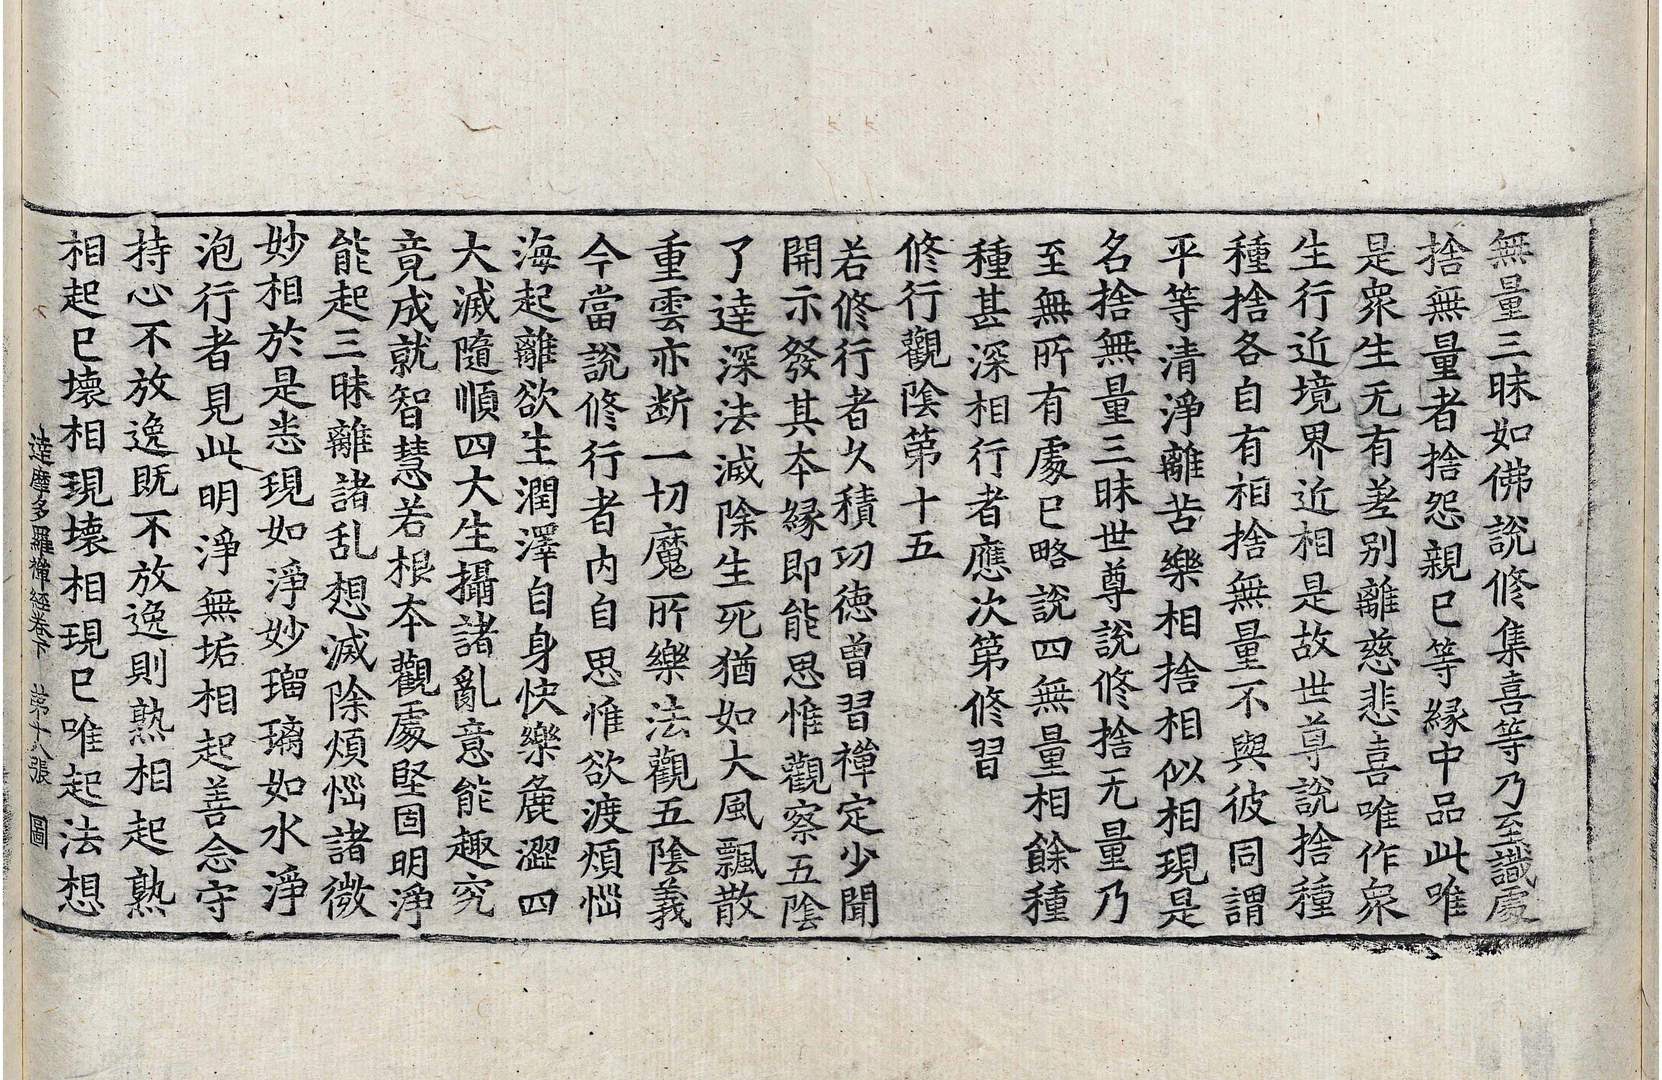 無量三昧如佛說修集喜等乃至識處
捨無量者捨怨親已等緣中品此唯
是衆生无有差别離慈悲喜唯作衆
生行近境界近相是故世尊說捨種
種捨各自有相捨無量不與彼同謂
平等清淨離苦樂相捨相似相現是
名捨無量三昧世尊說修捨无量乃
至無所有處已略說四無量相餘種
種甚深相行者應次第修習
修行觀陰第十五
若修行者久積功德曾習禪定少聞
開示發其本緣即能思惟觀察五陰
了達深法滅除生死猶如大風飄散
重雲亦断一切魔所樂法觀五陰義
今當說修行者内自思惟欲渡煩惱
海起離欲生潤澤自身快樂麁澀四
大滅隨順四大生攝諸亂意能趣究
竟成就智慧若根本觀處堅固明淨
能起三昧離諸乱想滅除煩惱諸微
妙相於是悉現如淨妙瑠璃如水淨
泡行者見此明淨無垢相起善念守
持心不放逸既不放逸則熟相起熟
相起已壞相現壞相現已唯起法想
達摩多羅禪經卷下 第十八張 圖